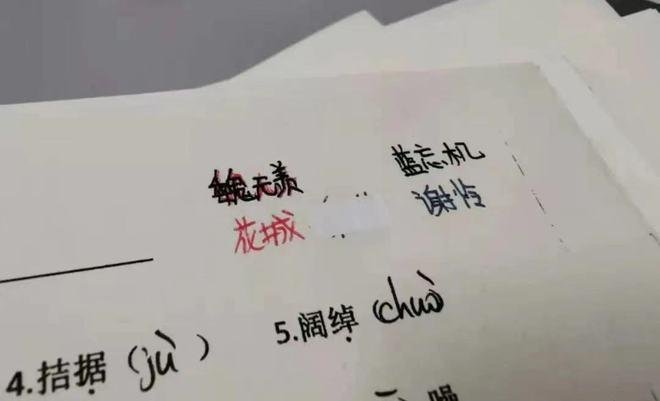 魏无羡 蓝忘机
花城 谢怜
4.拮据（jù） 5.阔绰（chuò）